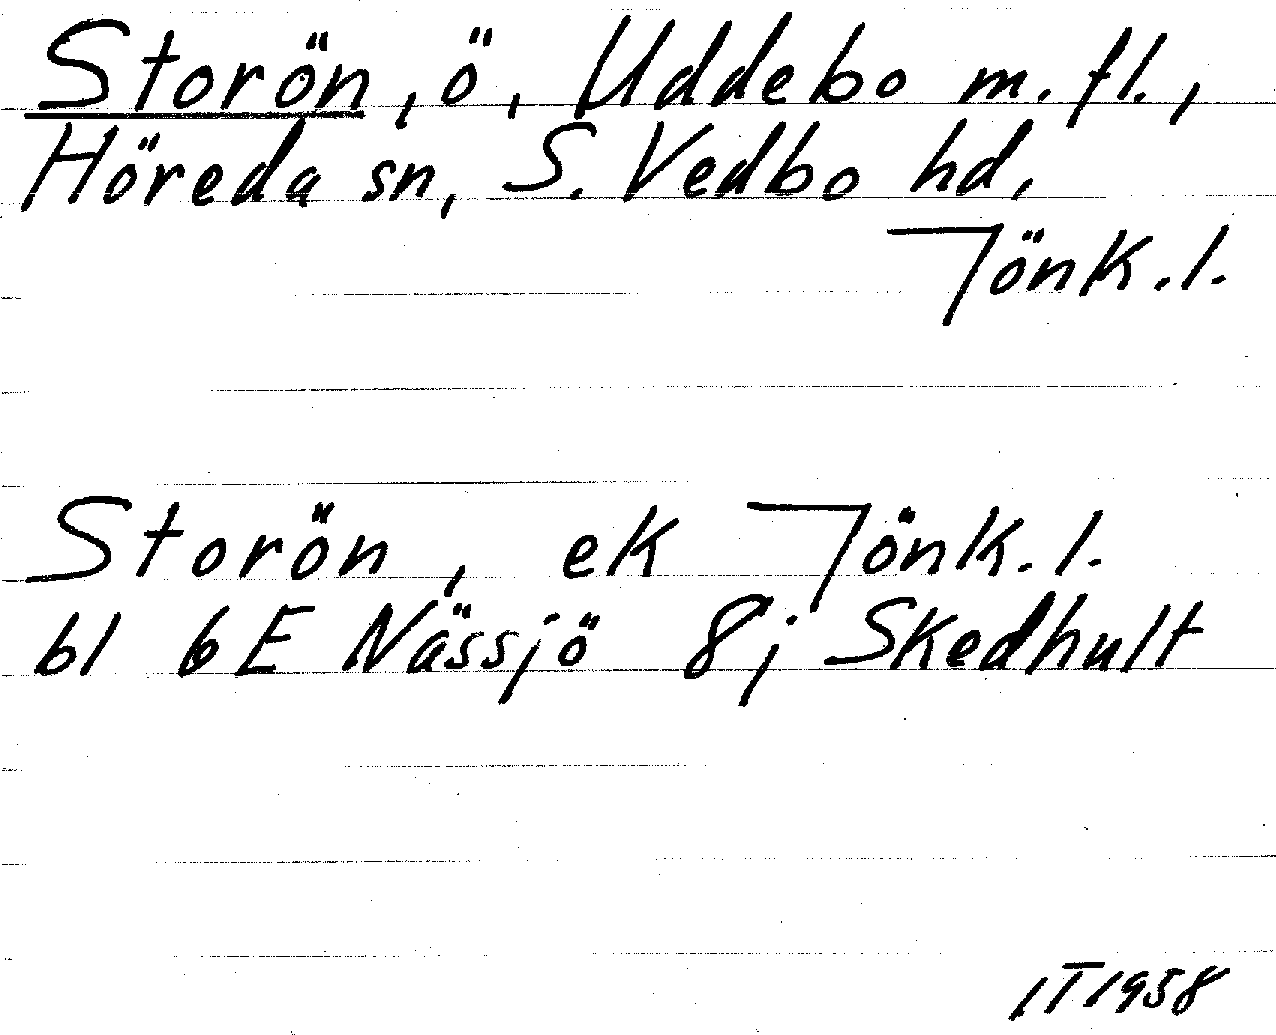 Storön, ö, Uddebo m. fl.,
Höreda sn, S. Vedbo hd,
Jönk. l.
Storön, ek Jönk. l.
bl 6E Nässjö 8j Skedhult
IT 1958